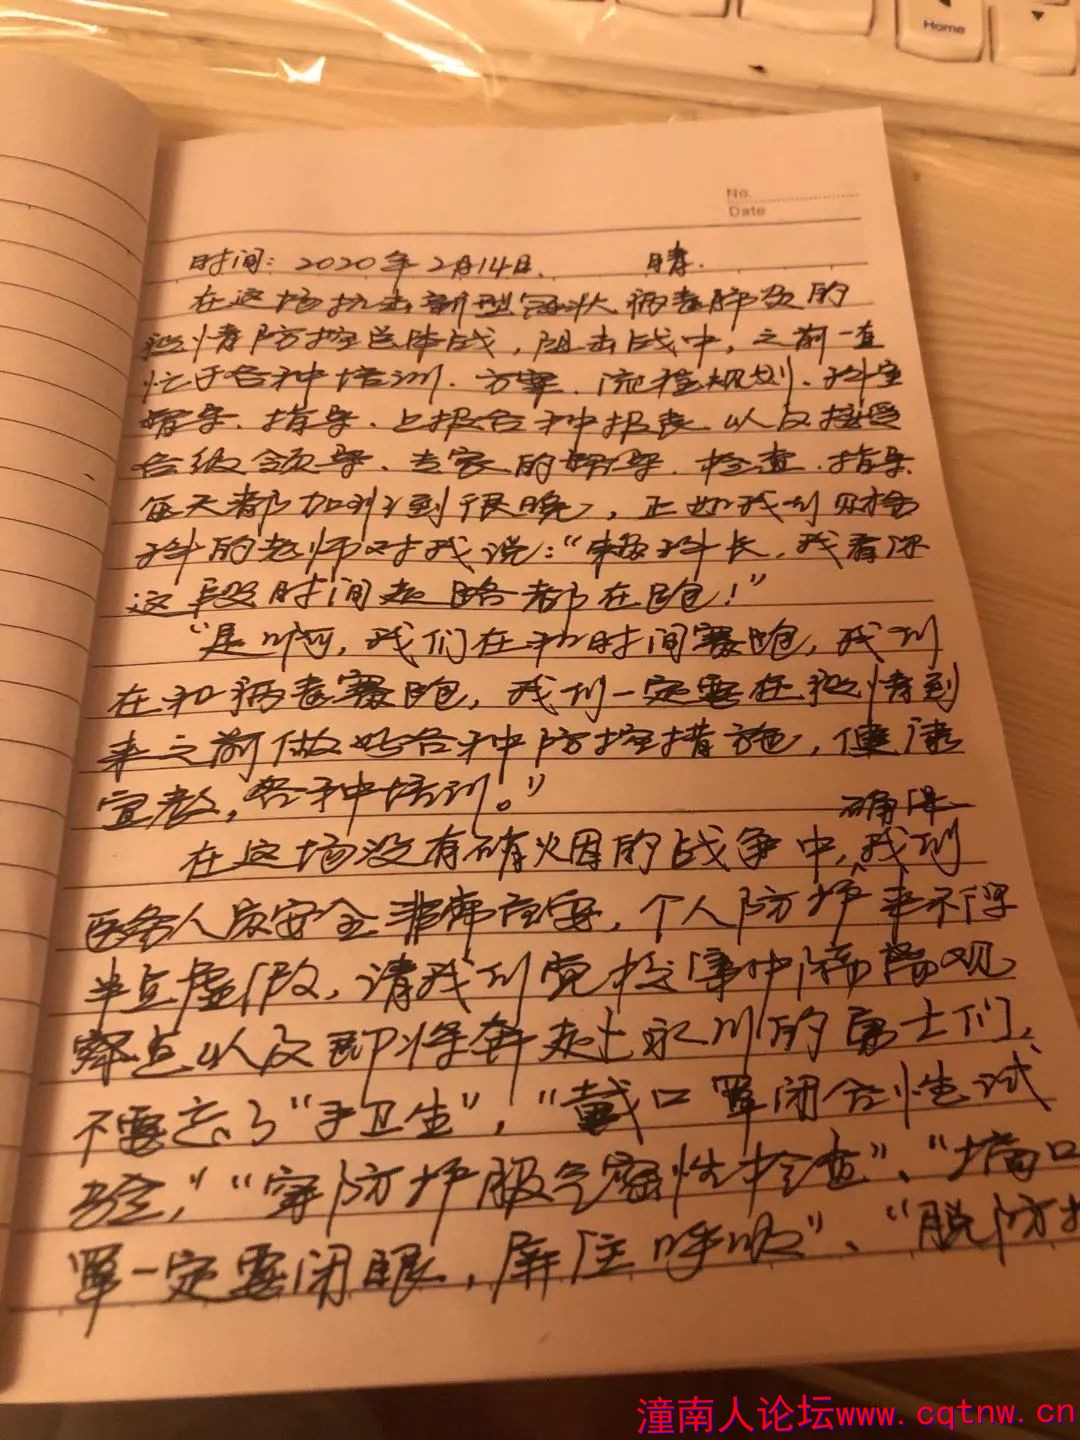 Home
No.
Date
时间：2020年2月14日. 晴.
在这场抗击新型冠状病毒肺炎的
疫情防控总体战，阻击战中，之前一直
忙于各种培训、方案、流程规划、科室
督导、指导、上报各种报表 以及接受
各级领导、专家的督导、检查、指导
每天都加班到很晚，正如我们财务
科的老师对我说：“科长，我看你
这段时间走路都在跑！”
“是啊，我们在和时间赛跑，我们
在和病毒赛跑，我们一定要在疫情到
来之前做好各种防控措施，健康
宣教，各种培训。”
确保
在这场没有硝烟的战争中，我们
医务人员安全非常重要，个人防护来不得
半点虚假，请我们党校集中隔离观
察点以及即将奔赴永川的勇士们，
不要忘了“手卫生”，“戴口罩闭合性试
验，”“穿防护服气密性检查”、“摘口
罩一定要闭眼，屏住呼吸”、“脱防护
潼南人论坛www.cqtnw.cn